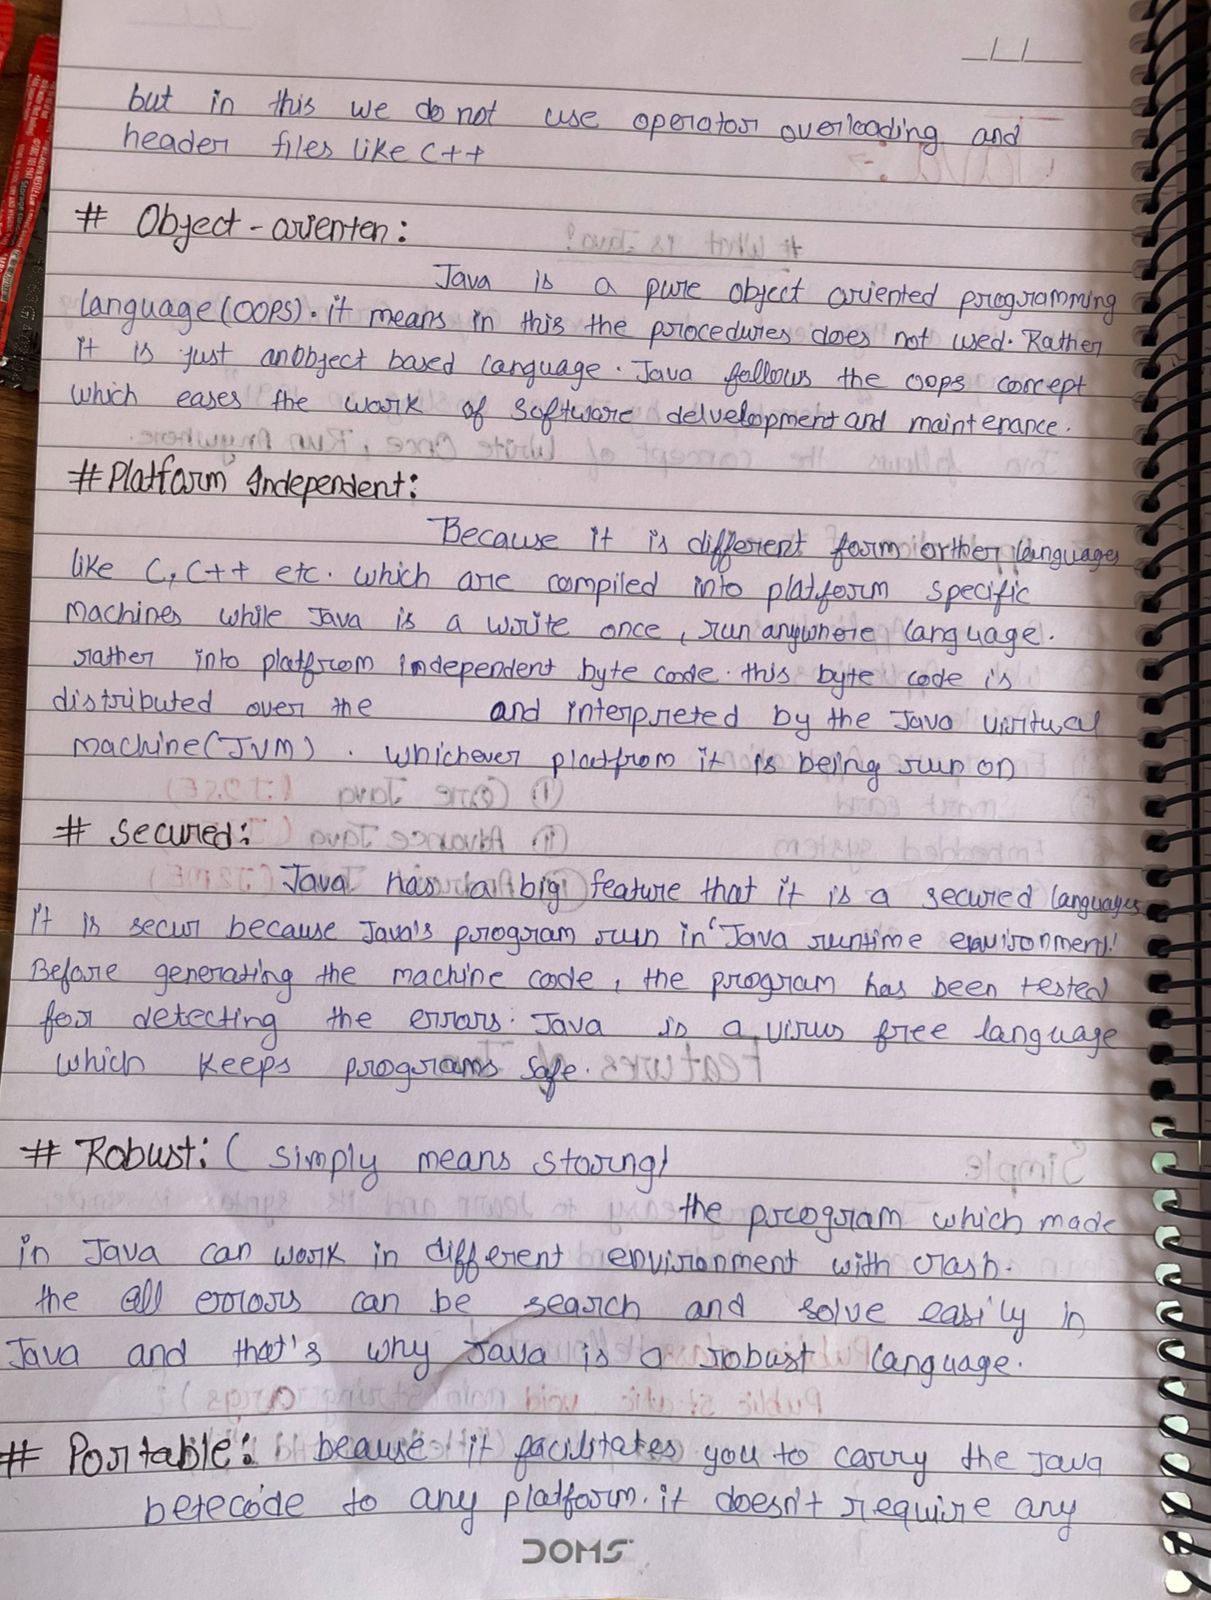 but in this we do not use operator overloading and
header files like C++
# Object-orienten:
Java is a pure object oriented programming
language(OOPS). it means in this the procedures does not used. Rather
it is just anobject based language. Java follows the oops concept
which eases the work of software delvelopment and maintenance.
# Platform Independent:
Because it is different form orther languages
like C, C++ etc. which are compiled into platform specific
machines while Java is a write once, run anywhere language.
rather into platfrom independent byte code. this byte code is
distributed over the and interpreted by the Java viritual
machine(JVM). whichever platfrom it is being run on
# Secured:
Java has a big feature that it is a secured languages
it is secur because Java's program run in 'Java runtime environment!
Before generating the machine code, the program has been tested
for detecting the errors. Java is a virus free language
which keeps programs safe.
# Robust: ( simply means storing)
the program which made
in Java can work in different environment with crash.
the all errors can be search and solve easily in
Java and that's why Java is a robust language.
# Portable: beause it facilitates you to carry the Java
betecode to any platform. it doesn't require any
DOMS